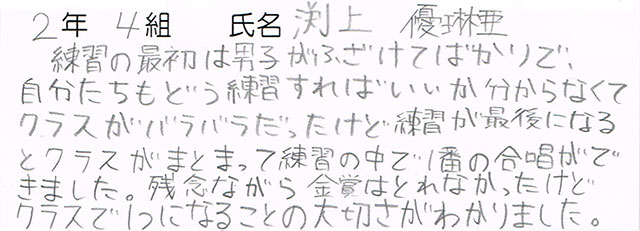 2年 4組 氏名 渕上 優琳亜
練習の最初は男子がふざけてばかりで、
自分たちもどう練習すればいいか分からなくて
クラスがバラバラだったけど練習が最後になる
とクラスがまとまって練習の中で1番の合唱がで
きました。残念ながら金賞はとれなかったけど
クラスで1つになることの大切さがわかりました。